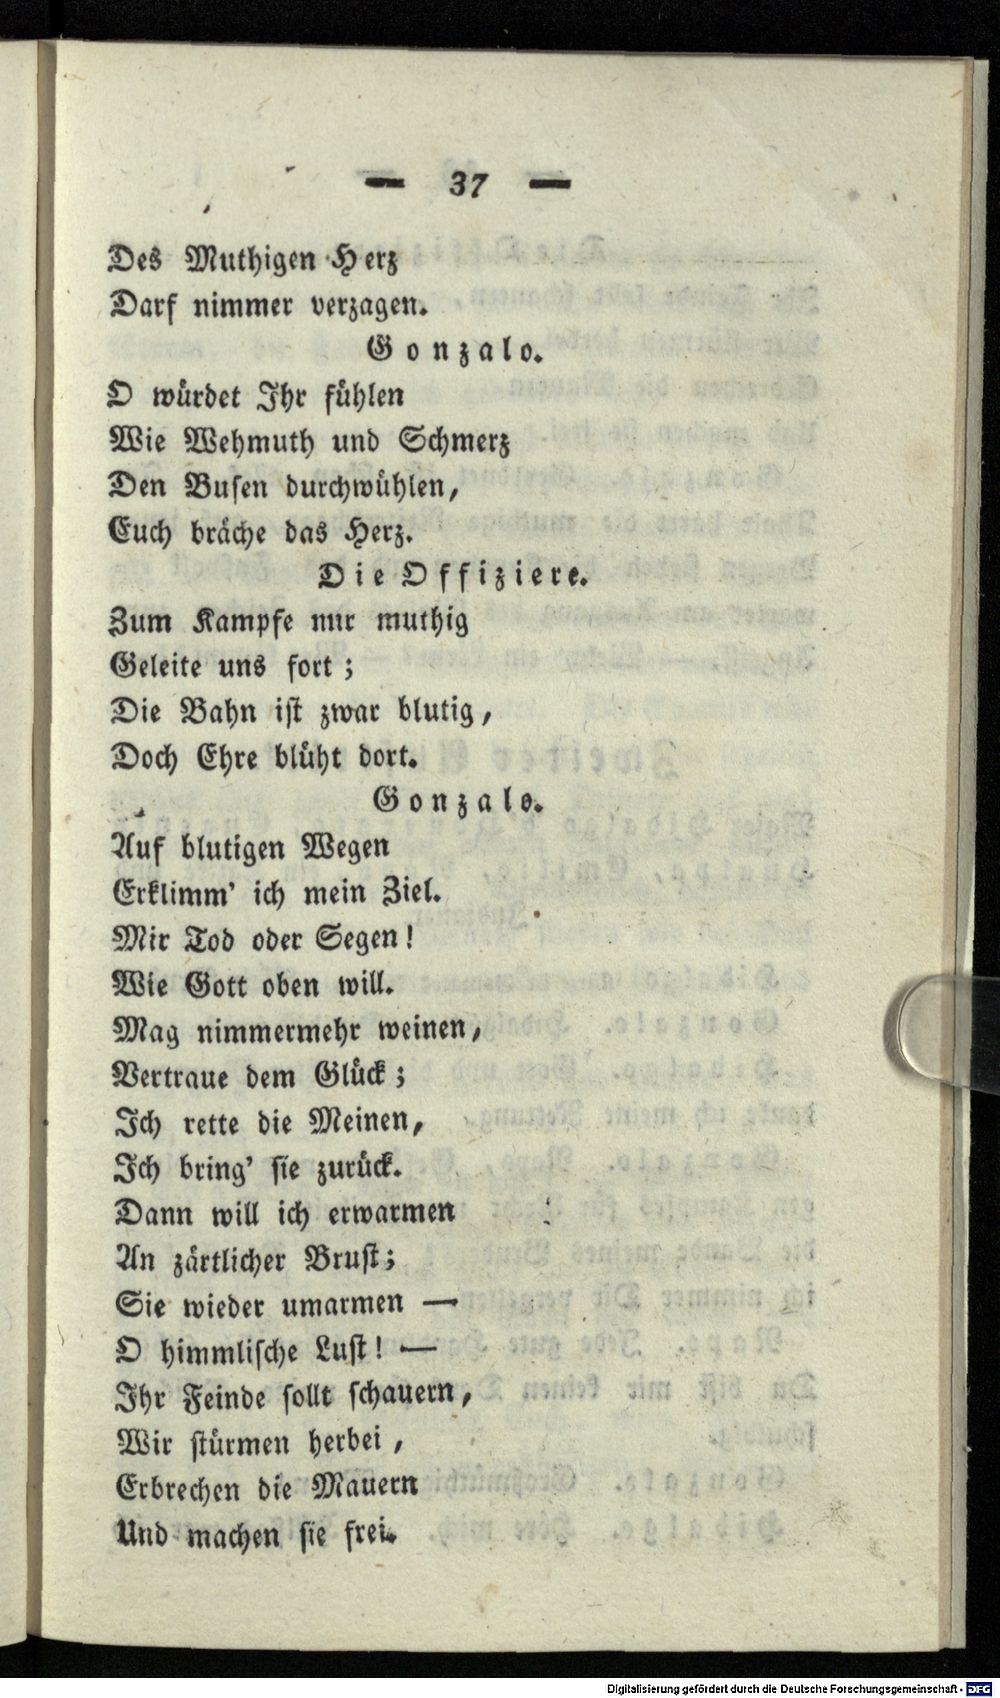 — 37 —
Des Muthigen Herz
Darf nimmer verzagen.
Gonzalo.
O würdet Ihr fühlen
Wie Wehmuth und Schmerz
Den Busen durchwühlen,
Euch bräche das Herz.
Die Offiziere.
Zum Kampfe nur muthig
Geleite uns fort;
Die Bahn ist zwar blutig,
Doch Ehre blüht dort.
Gonzalo.
Auf blutigen Wegen
Erklimm' ich mein Ziel.
Mir Tod oder Segen!
Wie Gott oben will.
Mag nimmermehr weinen,
Vertraue dem Glück;
Ich rette die Meinen,
Ich bring' sie zurück.
Dann will ich erwarmen
An zärtlicher Brust;
Sie wieder umarmen —
O himmlische Lust! —
Ihr Feinde sollt schauern,
Wir stürmen herbei,
Erbrechen die Mauern
Und machen sie frei.
Digitalisierung gefördert durch die Deutsche Forschungsgemeinschaft - DFG